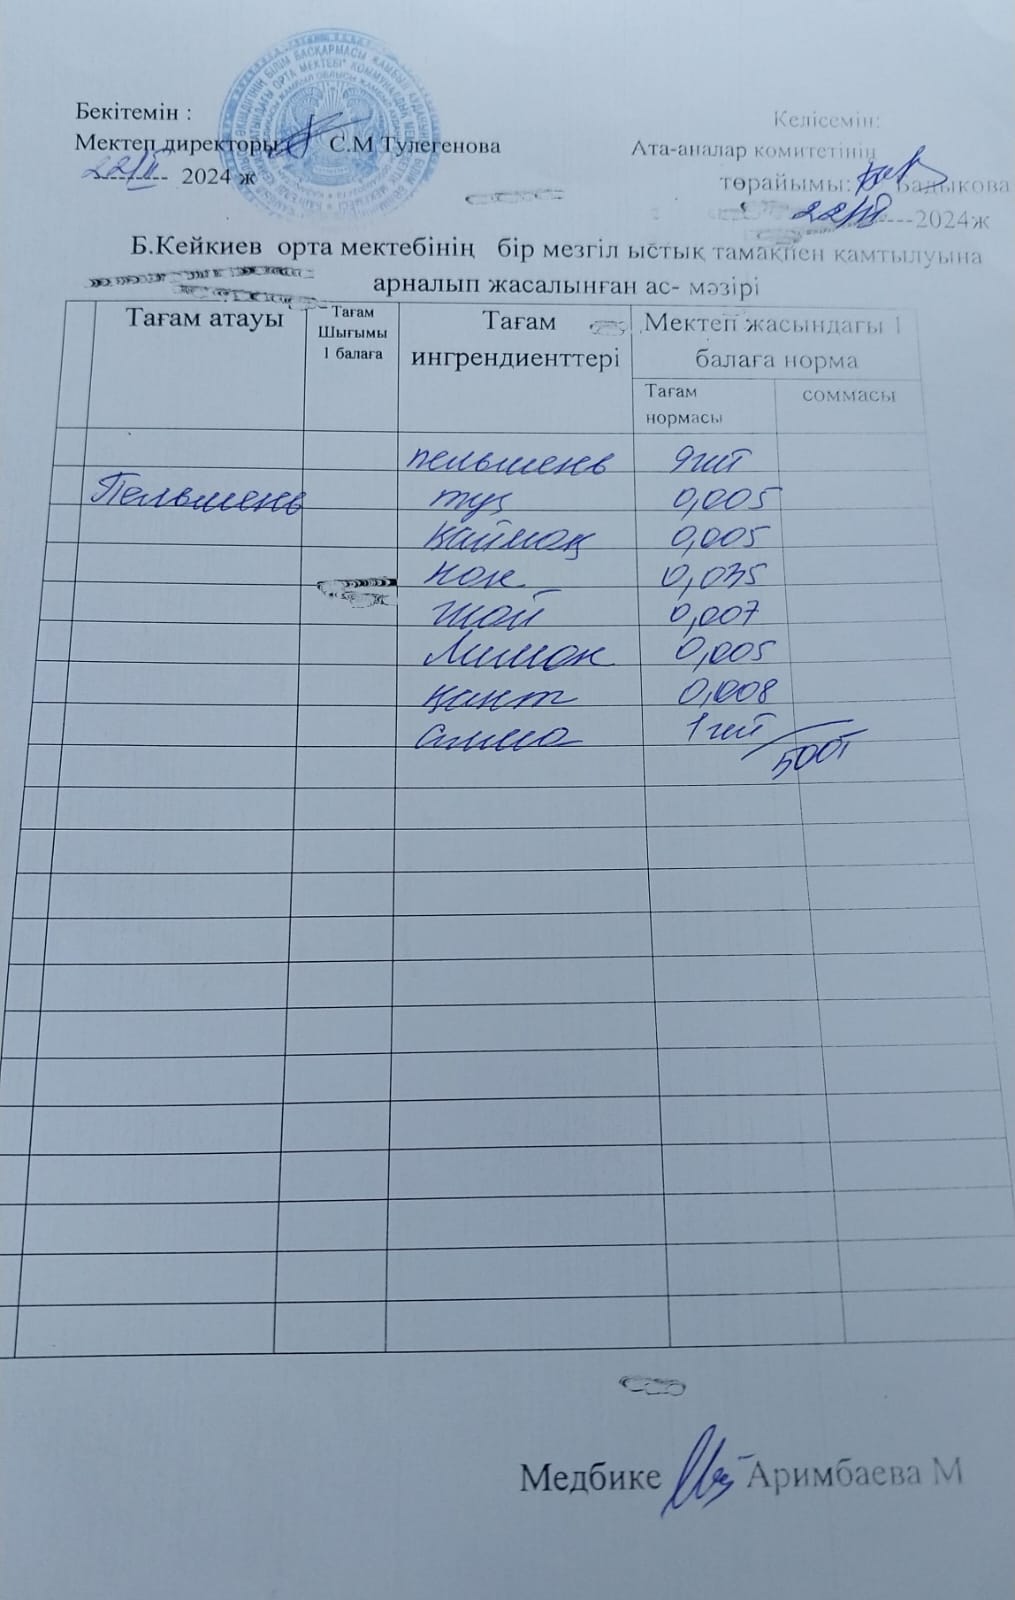 Бекітемін :
Мектеп директоры С.М Тулегенова
22/II 2024 ж
Келісемін:
Ата-аналар комитетінің
төрайымы: Бадыкова
22/II ----2024ж
Б.Кейкиев орта мектебінің бір мезгіл ыстық тамақпен қамтылуына
арналып жасалынған ас- мәзірі
Тағам атауы
Тағам
Шығымы
1 балаға
Тағам
ингрендиенттері
Мектеп жасындағы 1
балаға норма
Тағам
нормасы
соммасы
пельмень 9шт
Пельмень тұз 0,005
қаймақ 0,005
нан 0,035
шай 0,007
Лимон 0,005
қант 0,008
алма 1шт
500т
Медбике Аримбаева М